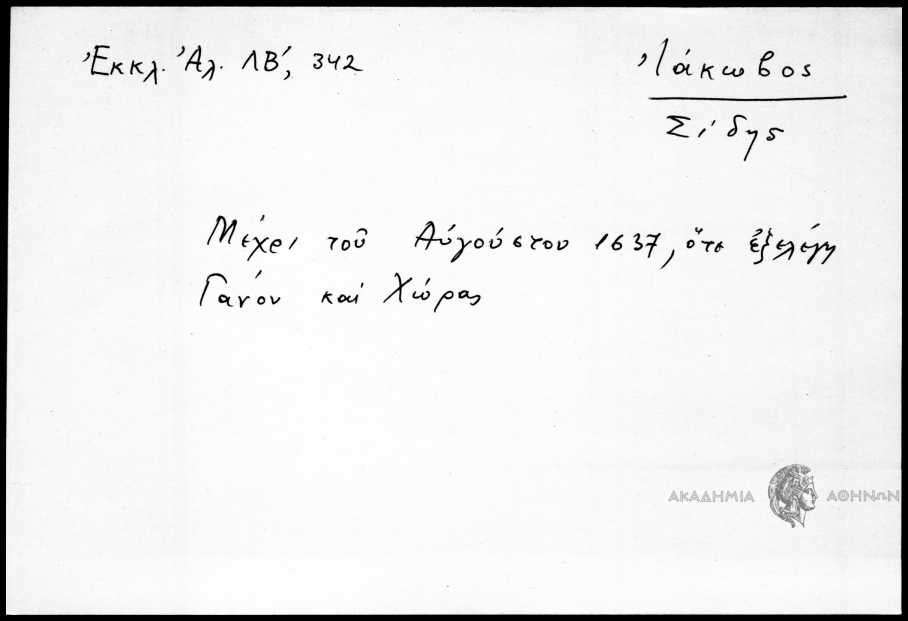 Ἐκκλ. Ἀλ. ΛΒ', 342
Ἰάκωβος
Σίδης
Μέχρι τοῦ Αὐγούστου 1637, ὅτε ἐξελέγη
Γάνου καί Χώρας
ΑΚΑΔΗΜΙΑ ΑΘΗΝΩΝ